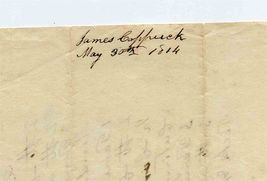 James Coppuck
May 30th 1814